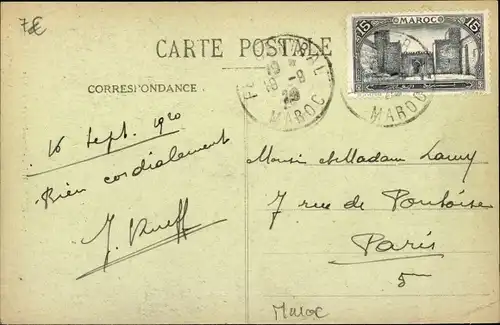 7€
CARTE POSTALE
CORRESPONDANCE
15 MAROC 15
VAL
19
18-9
20
MAROC
MAROC
16 Sept. 1920
Bien cordialement
J. Rueff
Monsieur et Madame Lamy
7 rue de Pontoise
Paris
5
Maroc